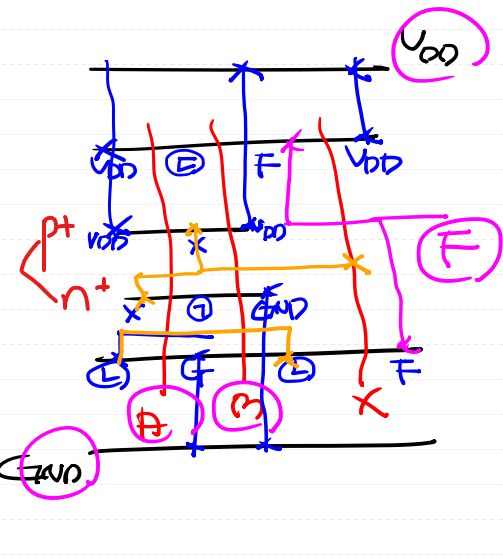 VDD
VDD F VDD
P+ VDD X VDD
F
n+ X GND
F
A B X
GND